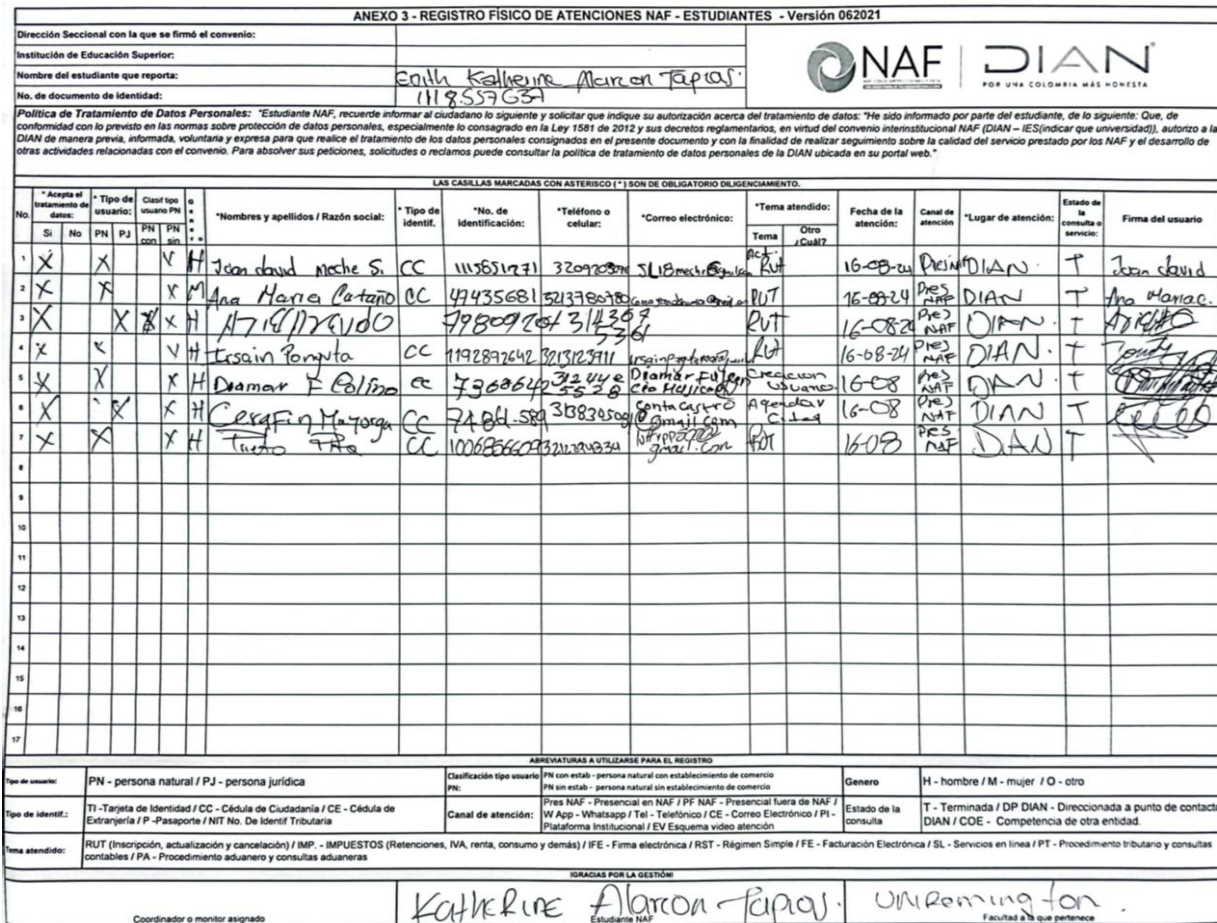 ANEXO 3 - REGISTRO FÍSICO DE ATENCIONES NAF - ESTUDIANTES - Versión 062021
Dirección Seccional con la que se firmó el convenio:
Institución de Educación Superior:
Nombre del estudiante que reporta: Enith Katherine Alarcon Tapias.
No. de documento de identidad: 1118.557637
NAF DIAN
POR UNA COLOMBIA MÁS HONESTA
Política de Tratamiento de Datos Personales: "Estudiante NAF, recuerde informar al ciudadano lo siguiente y solicitar que indique su autorización acerca del tratamiento de datos: "He sido informado por parte del estudiante, de lo siguiente: Que, de
conformidad con lo previsto en las normas sobre protección de datos personales, especialmente lo consagrado en la Ley 1581 de 2012 y sus decretos reglamentarios, en virtud del convenio interinstitucional NAF (DIAN – IES(indicar que universidad)), autorizo a la
DIAN de manera previa, informada, voluntaria y expresa para que realice el tratamiento de los datos personales consignados en el presente documento y con la finalidad de realizar seguimiento sobre la calidad del servicio prestado por los NAF y el desarrollo de
otras actividades relacionadas con el convenio. Para absolver sus peticiones, solicitudes o reclamos puede consultar la política de tratamiento de datos personales de la DIAN ubicada en su portal web."
LAS CASILLAS MARCADAS CON ASTERISCO ( * ) SON DE OBLIGATORIO DILIGENCIAMIENTO.
No. * Acepta el tratamiento de datos: Si No * Tipo de usuario: PN PJ Clasif tipo usuario PN PN con PN sin *Nombres y apellidos / Razón social: * Tipo de identif. *No. de identificación: *Teléfono o celular: *Correo electrónico: *Tema atendido: Tema Otro ¿Cuál? Fecha de la atención: Canal de atención *Lugar de atención: Estado de la consulta o servicio: Firma del usuario
1 X X H Joan david meche S. CC 1115851271 Act. Rut 16-08-24 DIAN T Joan david
2 X X X M Ana Maria Cataño CC 47435681 3213780780 RUT 16-08-24 Pres NAF DIAN T Ana Mariac.
3 X X X H RUT 16-08-24 Pres NAF DIAN T
4 X X H CC 1192892642 3213123911 Rut 16-08-24 Pres NAF DIAN T
5 X X X H Diamar F Colino CC Creacion Usuario 16-08 Pres NAF DIAN T
6 X X X H Cerafin Mayorga CC Contacastro @gmail.com Agendar Citas 16-08 Pres NAF DIAN T
7 X X X H CC 1006856609 gmail.com Rut 16-08 Pres NAF DIAN T
8
9
10
11
12
13
14
15
16
17
ABREVIATURAS A UTILIZARSE PARA EL REGISTRO
Tipo de usuario: PN - persona natural / PJ - persona jurídica Clasificación tipo usuario PN: PN con estab - persona natural con establecimiento de comercio PN sin estab - persona natural sin establecimiento de comercio Genero H - hombre / M - mujer / O - otro
Tipo de identif.: TI -Tarjeta de Identidad / CC - Cédula de Ciudadanía / CE - Cédula de Extranjería / P -Pasaporte / NIT No. De Identif Tributaria Canal de atención: Pres NAF - Presencial en NAF / PF NAF - Presencial fuera de NAF / W App - Whatsapp / Tel - Telefónico / CE - Correo Electrónico / PI - Plataforma Institucional / EV Esquema video atención Estado de la consulta T - Terminada / DP DIAN - Direccionada a punto de contacto DIAN / COE - Competencia de otra entidad.
Tema atendido: RUT (Inscripción, actualización y cancelación) / IMP. - IMPUESTOS (Retenciones, IVA, renta, consumo y demás) / IFE - Firma electrónica / RST - Régimen Simple / FE - Facturación Electrónica / SL - Servicios en línea / PT - Procedimiento tributario y consultas
contables / PA - Procedimiento aduanero y consultas aduaneras
¡GRACIAS POR LA GESTIÓN!
Katherine Alarcon Tapias. Uniremington.
Coordinador o monitor asignado Estudiante NAF Facultad a la que pertenece